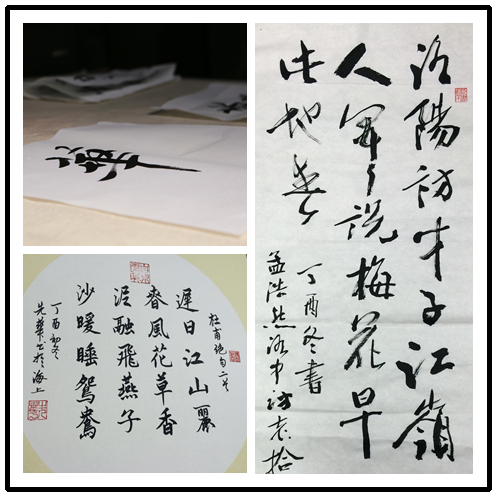 洛陽訪才子江嶺
人聞說梅花早
此地春
丁酉冬書
孟浩然洛中訪袁拾
杜甫絕句二首
遲日江山麗
春風花草香
泥融飛燕子
沙暖睡鴛鴦
丁酉初冬
先華書於海上